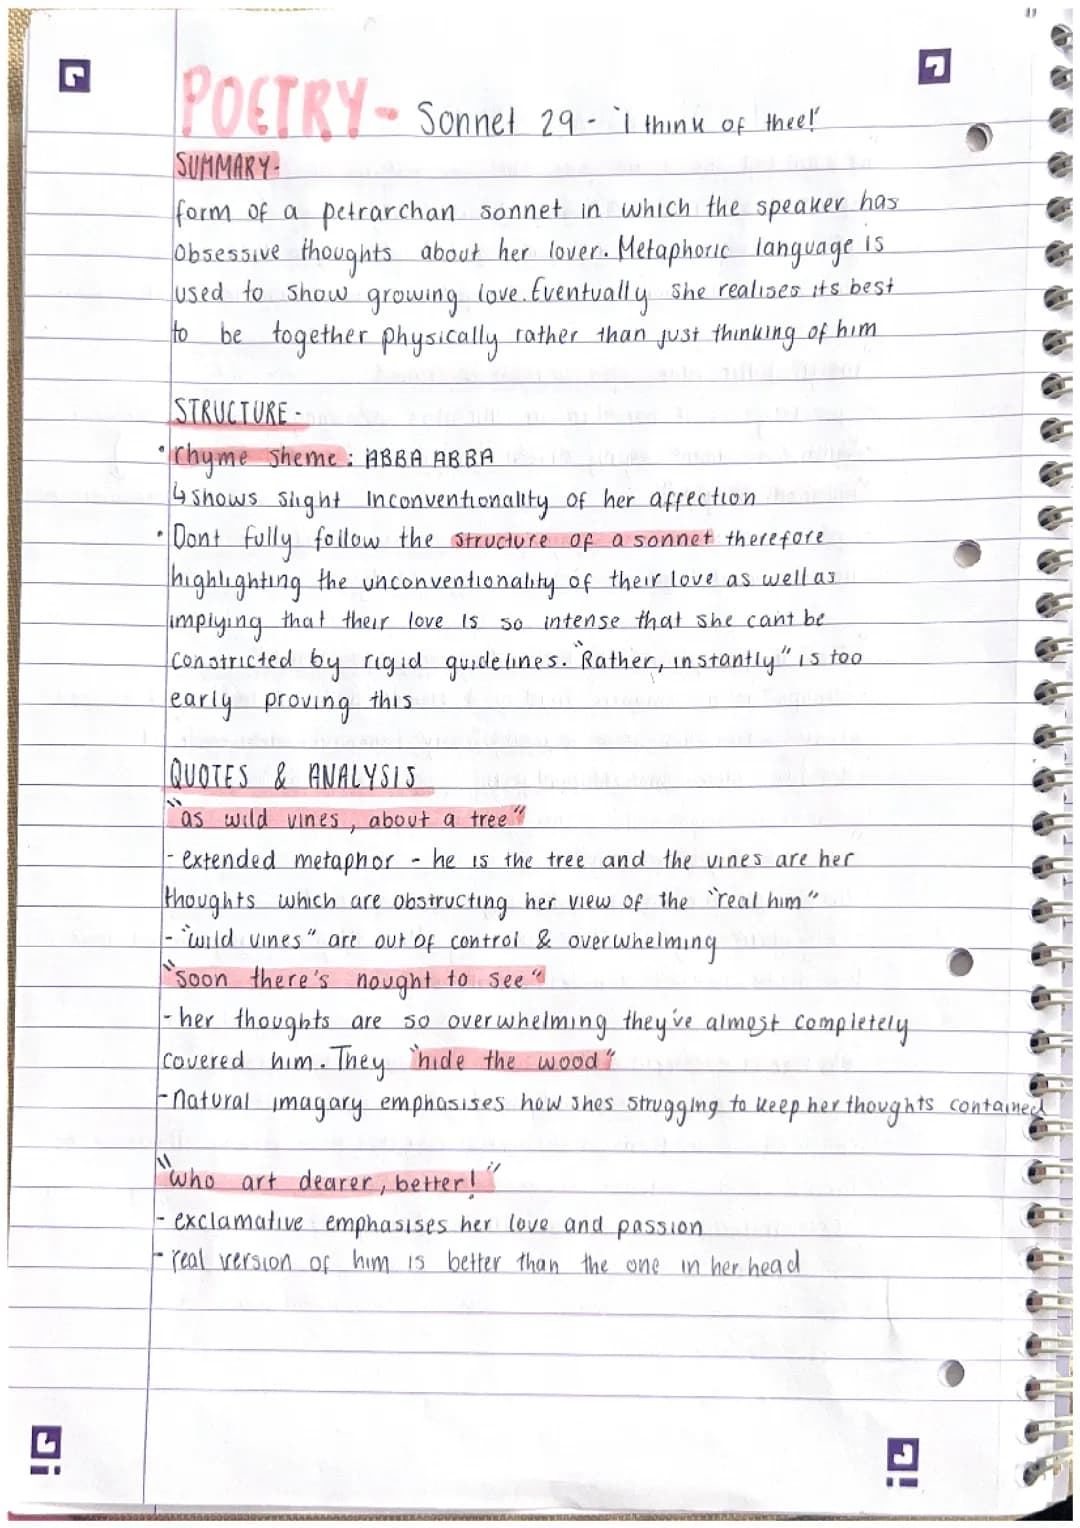 POETRY- Sonnet 29 - 'i think of thee!'
SUMMARY-
form of a petrarchan sonnet in which the speaker has
Obsessive thoughts about her lover. Metaphoric language is
used to show growing love. Eventually she realises its best
to be together physically rather than just thinking of him
STRUCTURE-
• rhyme sheme: ABBA ABBA
↳ shows slight inconventionality of her affection
• Dont fully follow the structure of a sonnet therefore
highlighting the unconventionality of their love as well as
implying that their love is so intense that she cant be
constricted by rigid guidelines. "Rather, instantly" is too
early proving this
QUOTES & ANALYSIS
"as wild vines, about a tree"
- extended metaphor - he is the tree and the vines are her
thoughts which are obstructing her view of the "real him"
- "wild vines" are out of control & overwhelming
"soon there's nought to see"
- her thoughts are so overwhelming they've almost completely
covered him. They "hide the wood"
- natural imagary emphasises how shes strugging to keep her thoughts contained
"who art dearer, better!"
- exclamative emphasises her love and passion
- real version of him is better than the one in her head